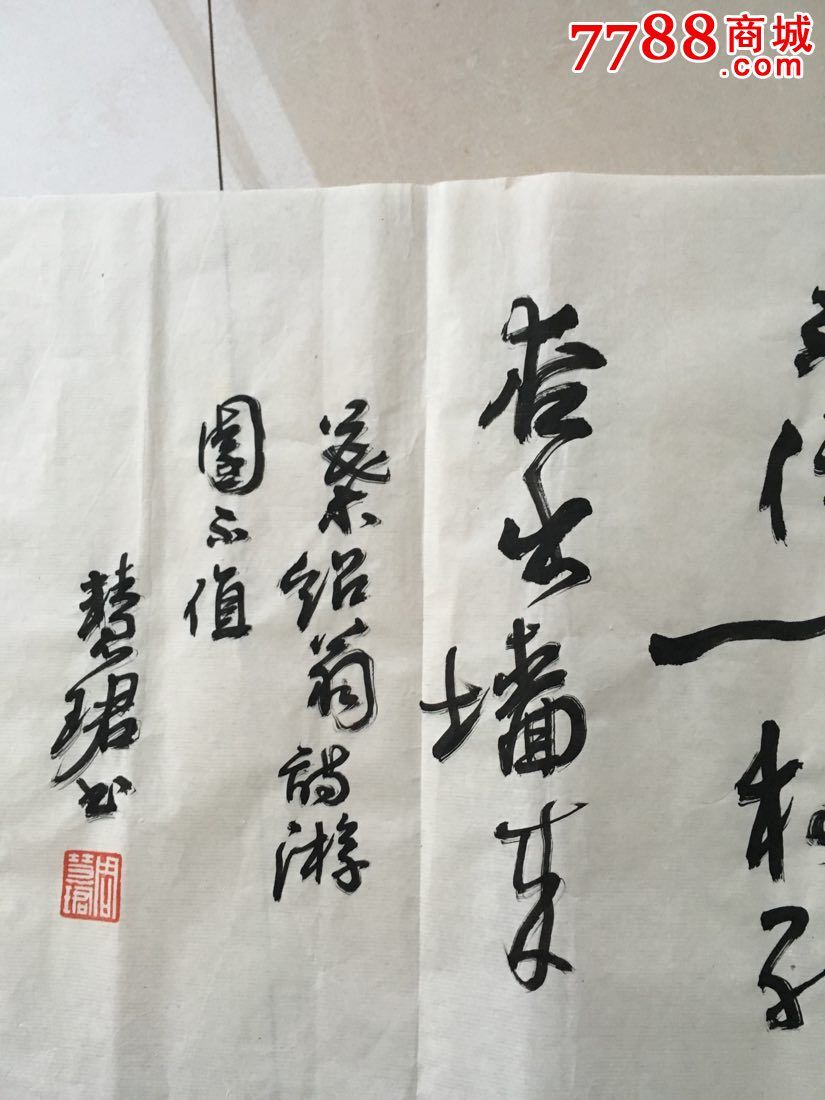 7788商城
.com
住一枝红
杏出墙来
葉绍翁诗游
園不值
慧珺书
周慧珺